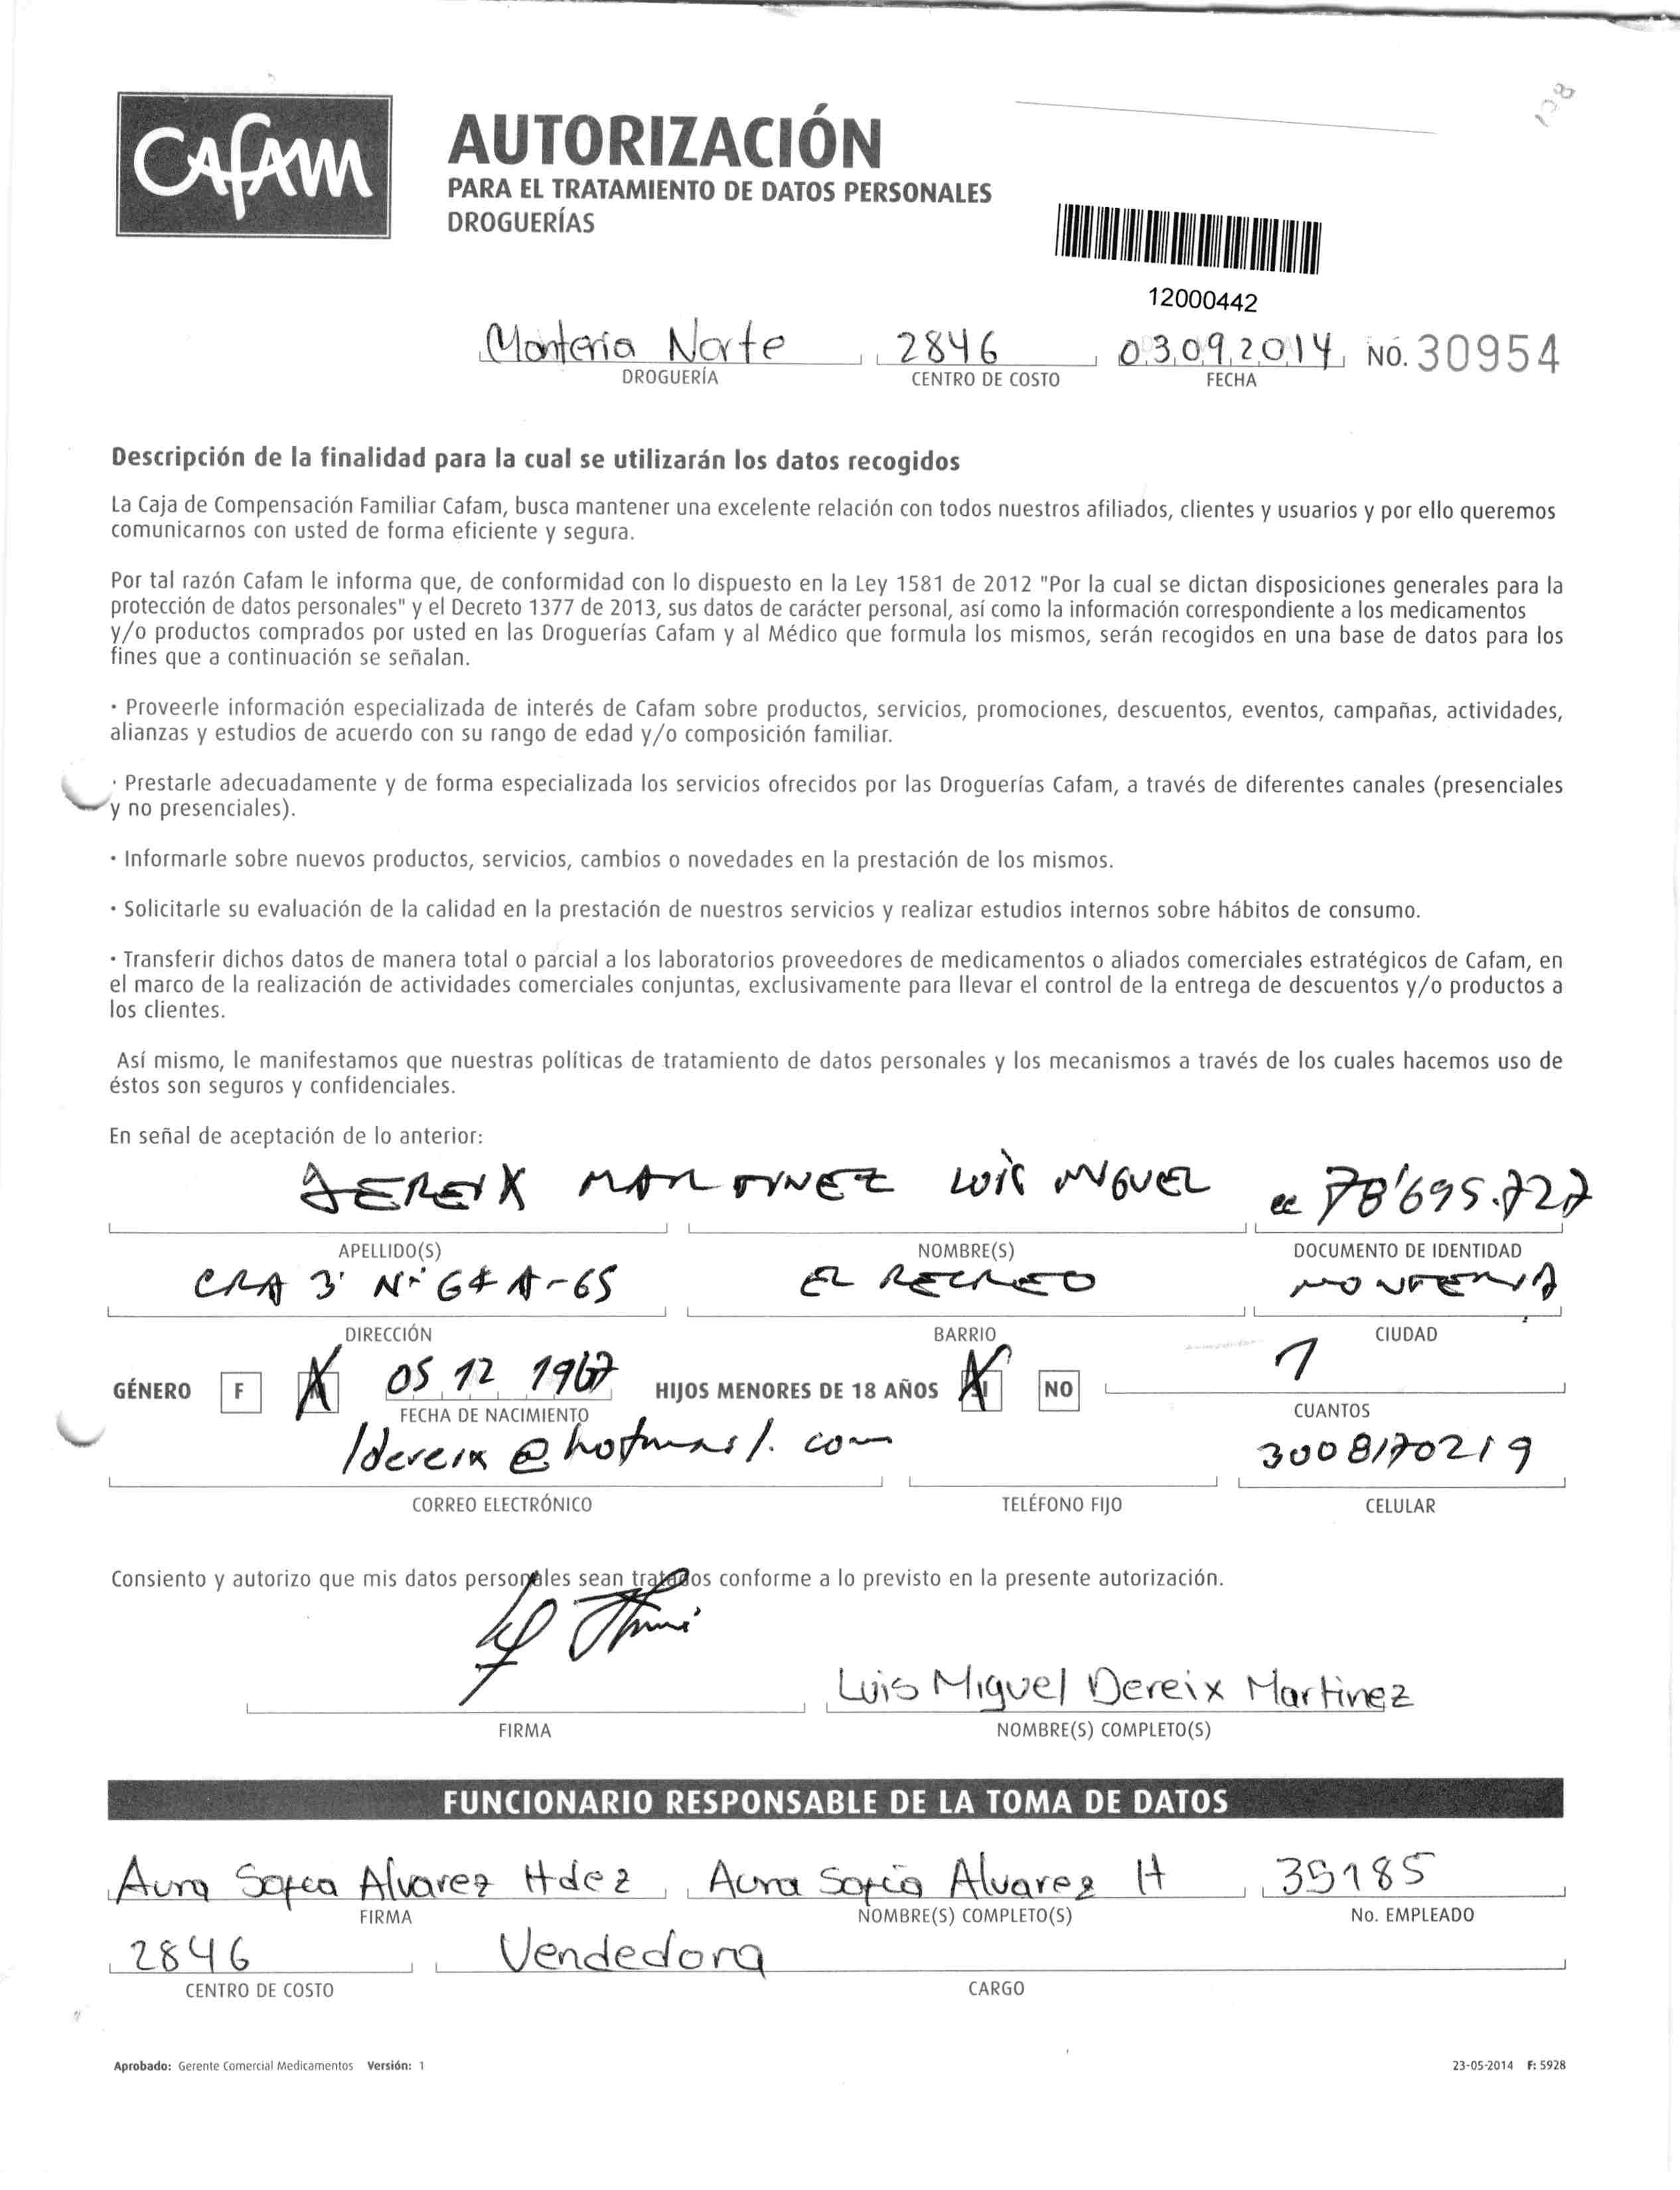 128
CAFAM
AUTORIZACIÓN
PARA EL TRATAMIENTO DE DATOS PERSONALES
DROGUERÍAS
12000442
Monteria Norte 2846 03.09.2014 NO. 30954
DROGUERÍA CENTRO DE COSTO FECHA
Descripción de la finalidad para la cual se utilizarán los datos recogidos
La Caja de Compensación Familiar Cafam, busca mantener una excelente relación con todos nuestros afiliados, clientes y usuarios y por ello queremos
comunicarnos con usted de forma eficiente y segura.
Por tal razón Cafam le informa que, de conformidad con lo dispuesto en la Ley 1581 de 2012 "Por la cual se dictan disposiciones generales para la
protección de datos personales" y el Decreto 1377 de 2013, sus datos de carácter personal, así como la información correspondiente a los medicamentos
y/o productos comprados por usted en las Droguerías Cafam y al Médico que formula los mismos, serán recogidos en una base de datos para los
fines que a continuación se señalan.
· Proveerle información especializada de interés de Cafam sobre productos, servicios, promociones, descuentos, eventos, campañas, actividades,
alianzas y estudios de acuerdo con su rango de edad y/o composición familiar.
· Prestarle adecuadamente y de forma especializada los servicios ofrecidos por las Droguerías Cafam, a través de diferentes canales (presenciales
y no presenciales).
· Informarle sobre nuevos productos, servicios, cambios o novedades en la prestación de los mismos.
· Solicitarle su evaluación de la calidad en la prestación de nuestros servicios y realizar estudios internos sobre hábitos de consumo.
· Transferir dichos datos de manera total o parcial a los laboratorios proveedores de medicamentos o aliados comerciales estratégicos de Cafam, en
el marco de la realización de actividades comerciales conjuntas, exclusivamente para llevar el control de la entrega de descuentos y/o productos a
los clientes.
Así mismo, le manifestamos que nuestras políticas de tratamiento de datos personales y los mecanismos a través de los cuales hacemos uso de
éstos son seguros y confidenciales.
En señal de aceptación de lo anterior:
DEREIX MARTINEZ LUIS MIGUEL cc 78'695.727
APELLIDO(S) NOMBRE(S) DOCUMENTO DE IDENTIDAD
CRA 3 Nº A-65 EL RECREO MONTERIA
DIRECCIÓN BARRIO CIUDAD
GÉNERO F M 05 12 1967 HIJOS MENORES DE 18 AÑOS SI NO 1
FECHA DE NACIMIENTO CUANTOS
ldereix@hotmail.com 3008170219
CORREO ELECTRÓNICO TELÉFONO FIJO CELULAR
Consiento y autorizo que mis datos personales sean tratados conforme a lo previsto en la presente autorización.
Luis Miguel Dereix Martinez
FIRMA NOMBRE(S) COMPLETO(S)
FUNCIONARIO RESPONSABLE DE LA TOMA DE DATOS
Aura Sofia Alvarez Hdez Aura Sofia Alvarez H 35185
FIRMA NOMBRE(S) COMPLETO(S) No. EMPLEADO
2846 Vendedora
CENTRO DE COSTO CARGO
Aprobado: Gerente Comercial Medicamentos Versión: 1 23-05-2014 F: 5928